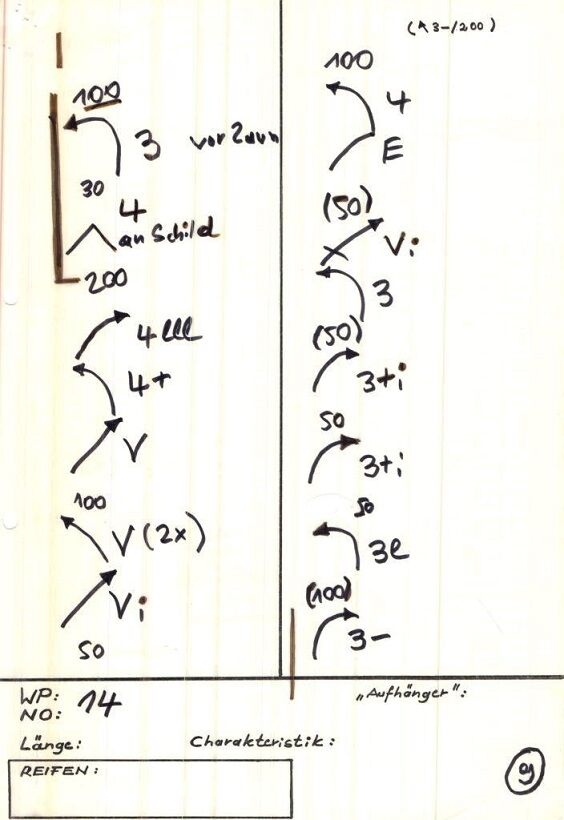 100
3 vor Zaun
30
4
an Schild
200
4 lll
4+
V
100
V (2x)
Vi
50
(3-/200)
100
4
E
(50)
Vi
3
(50)
3+i
50
3+i
50
3l
(100)
3-
WP: 14
NO:
Länge:
Charakteristik:
„Aufhänger":
REIFEN: